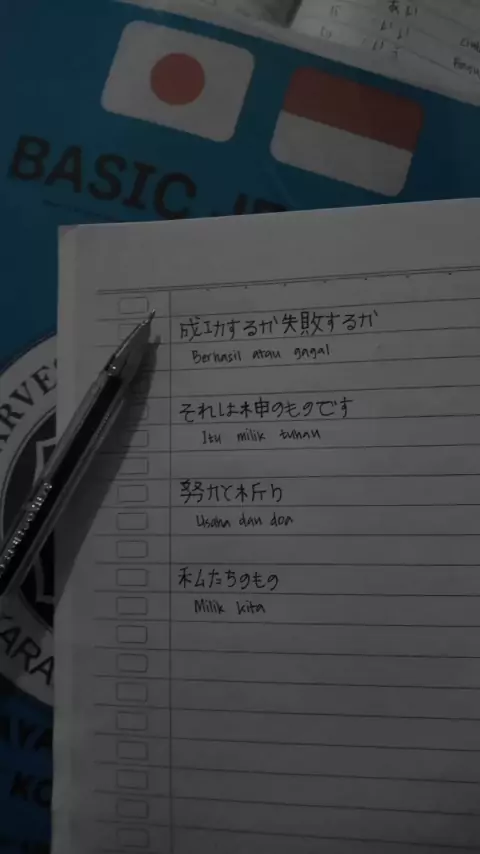 あい
いい
いう
BASIC
成功するか失敗するか
Berhasil atau gagal
それは神のものです
Itu milik tuhan
努力と祈り
Usaha dan doa
私たちのもの
Milik kita